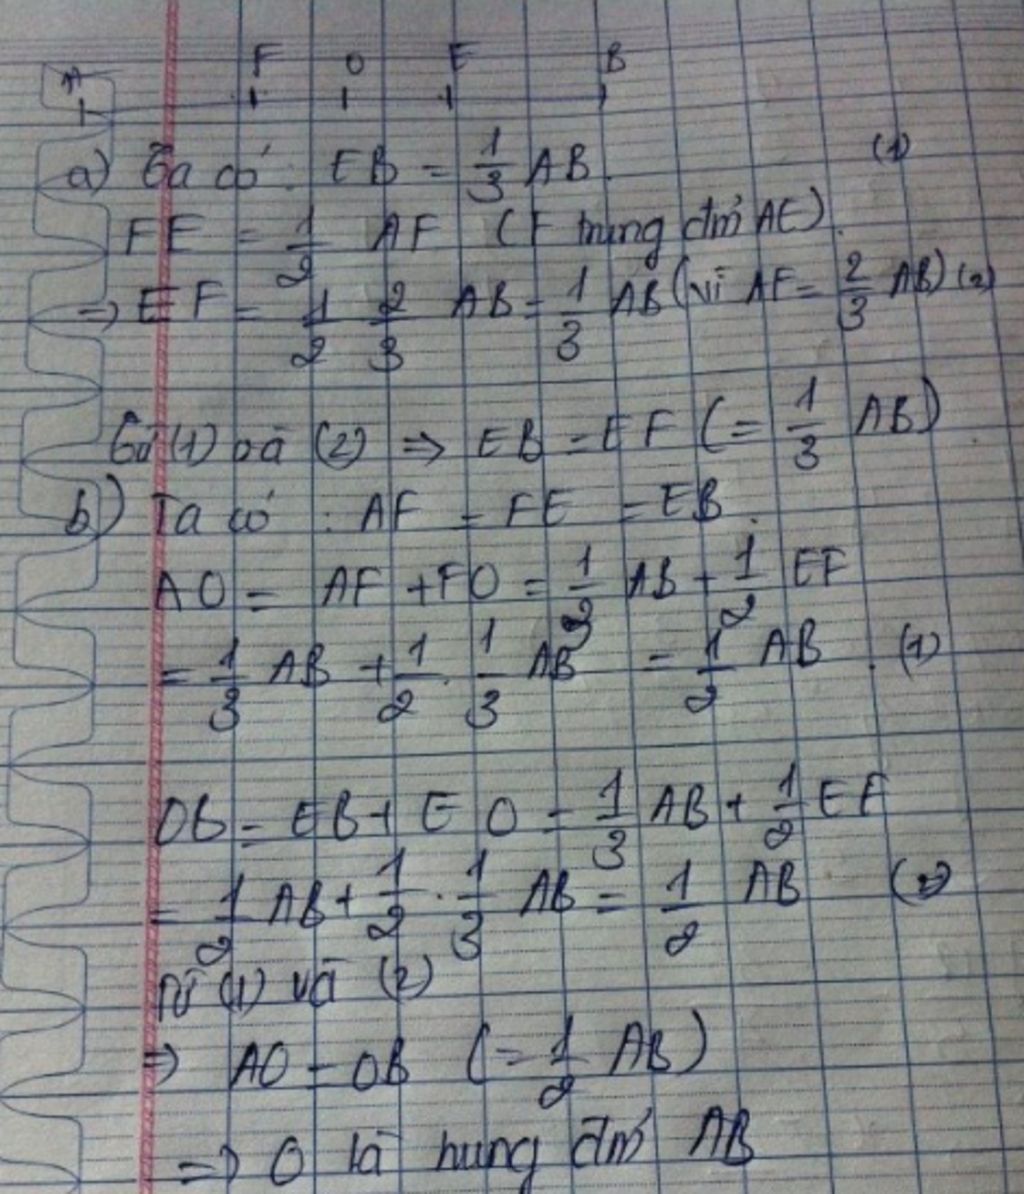 A F O E B
a) Ta có: EB = 1/3 AB. (1)
FE = 1/2 AF (F trung điểm AE).
=> EF = 1/2 2/3 AB = 1/3 AB (vì AF = 2/3 AB) (2)
Từ (1) và (2) => EB = EF (= 1/3 AB)
b) Ta có: AF = FE = EB.
AO = AF + FO = 1/3 AB + 1/2 EF
= 1/3 AB + 1/2 . 1/3 AB = 1/2 AB. (1)
OB = EB + EO = 1/3 AB + 1/2 EF
= 1/2 AB + 1/2 . 1/3 AB = 1/2 AB (2)
Từ (1) và (2)
=> AO = OB (= 1/2 AB)
=> O là trung điểm AB